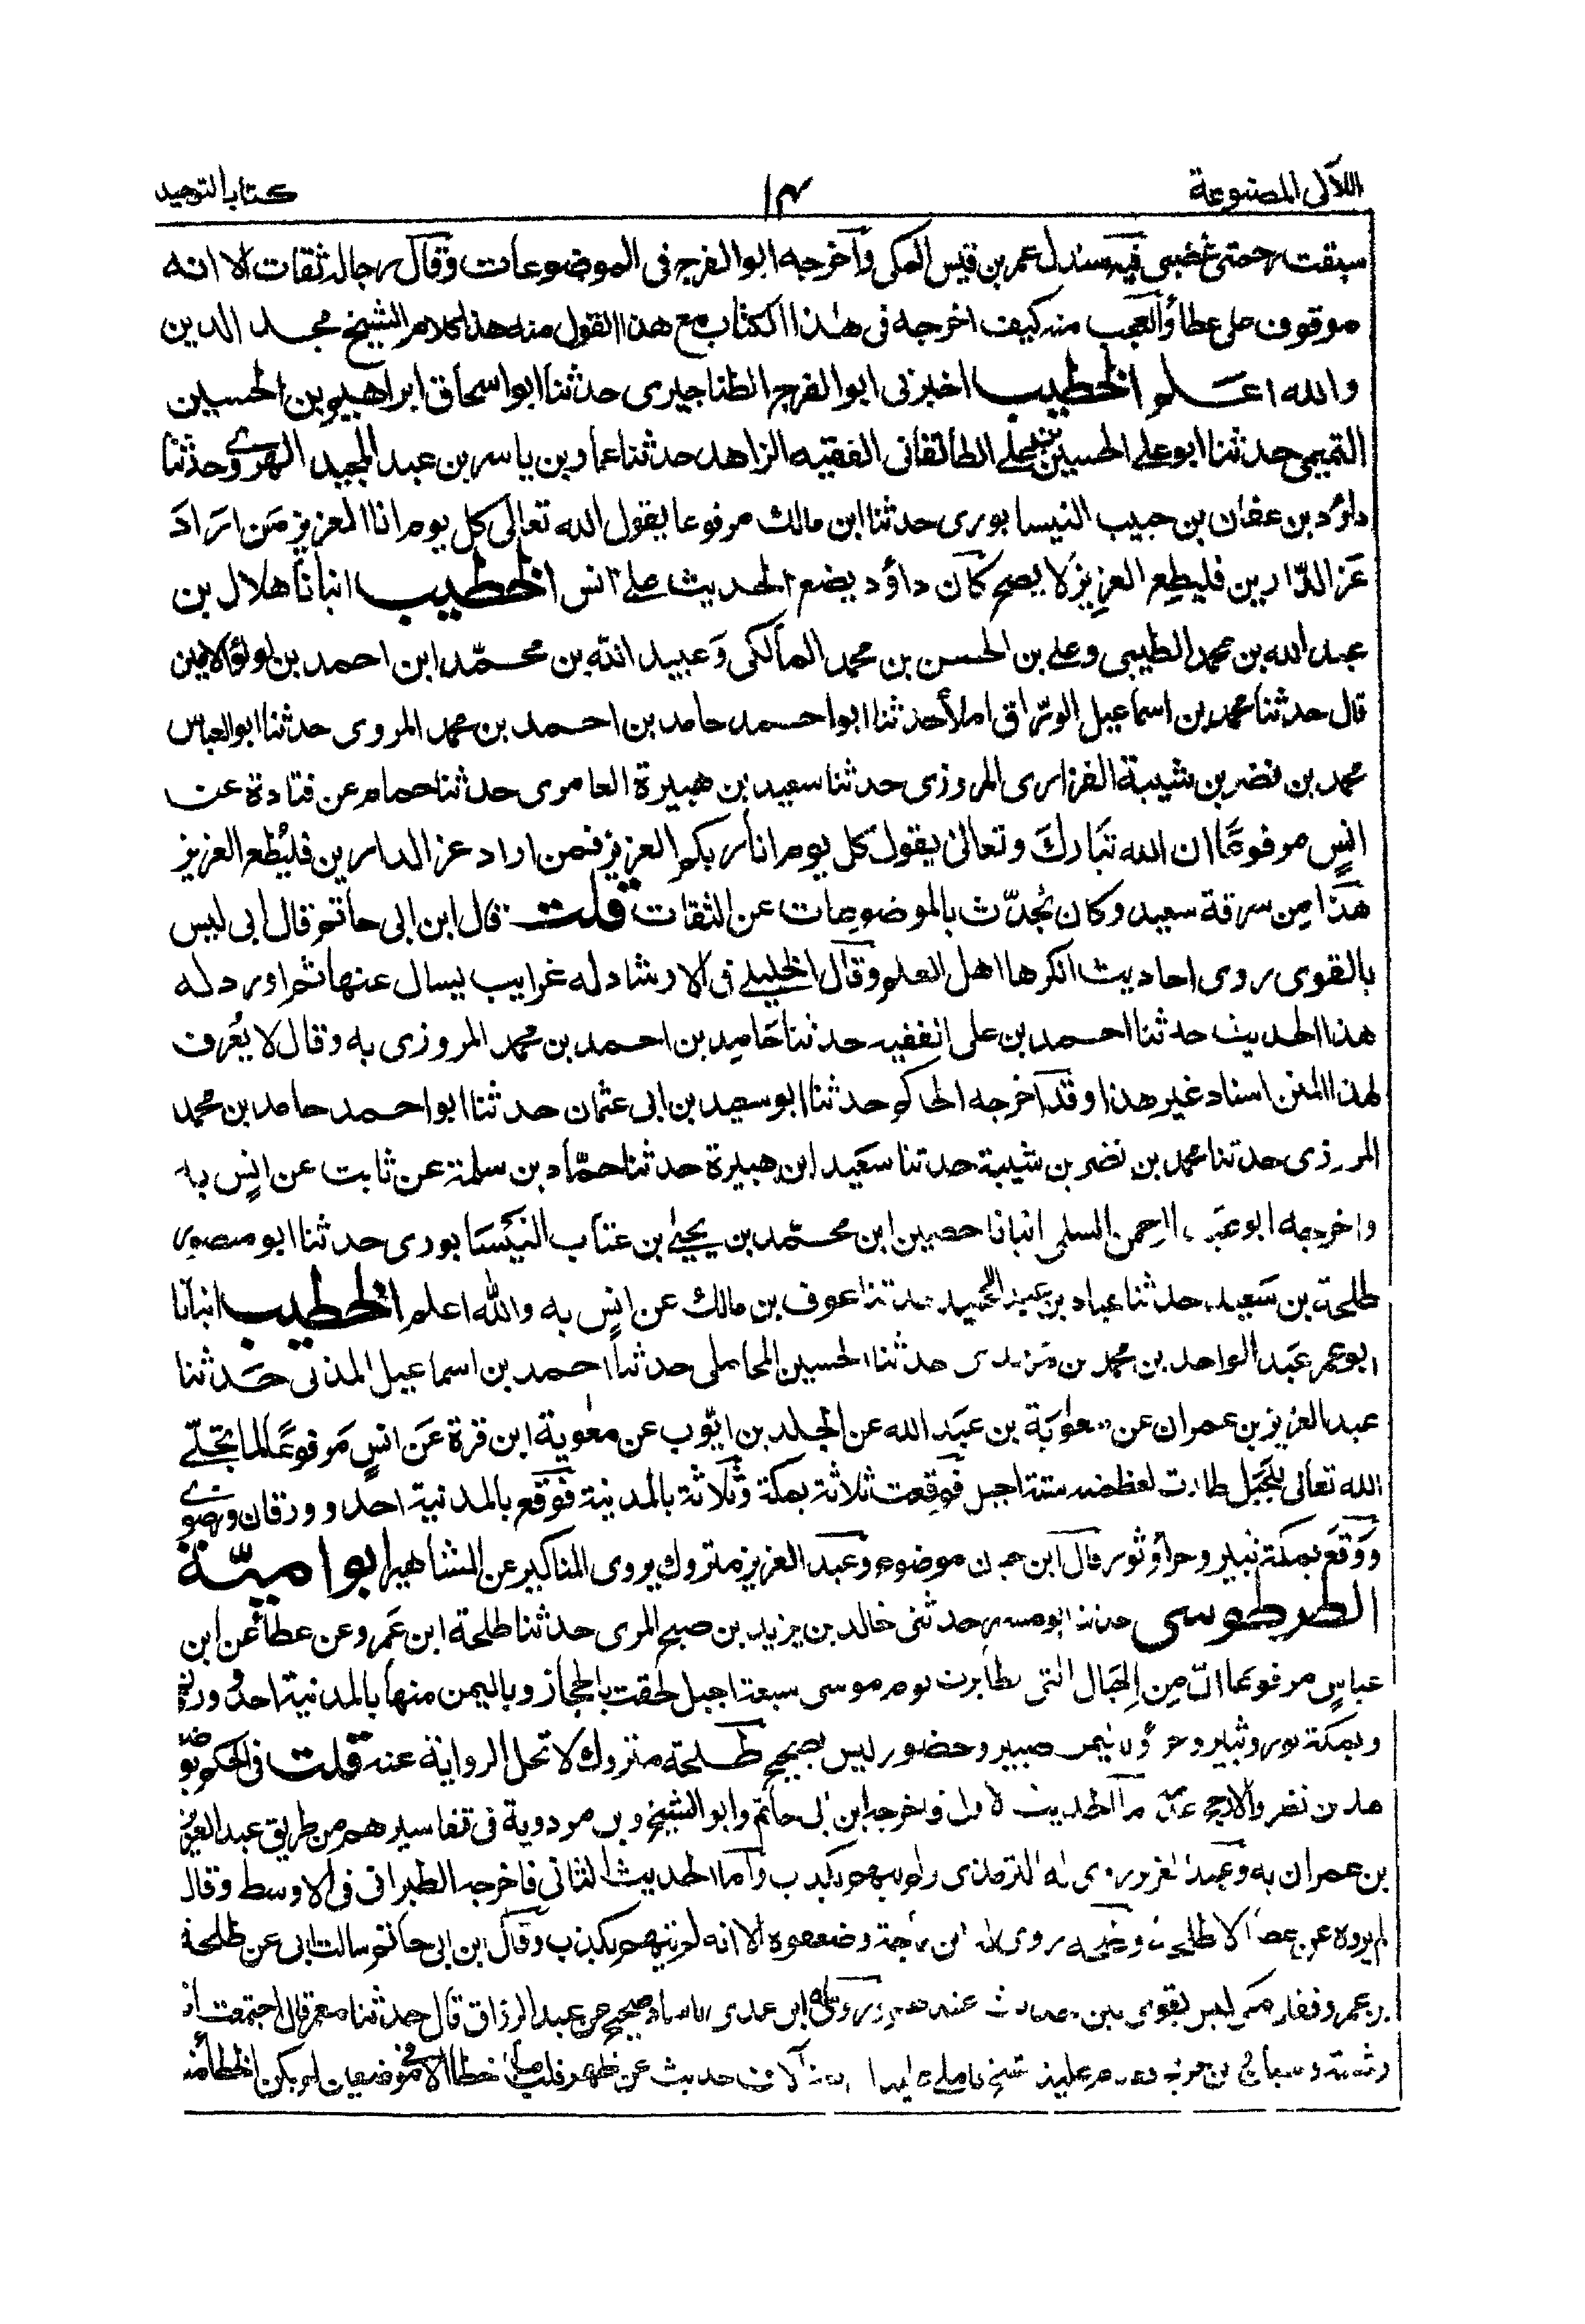 اللآلى المصنوعة
١٣
كتاب التوحيد
سبقت رحمتى غضبى فيه سندل عمر بن قيس المكى وآخرجه ابوالفرج فى الموضوعات وقال رجاله ثقات الا انه
موقوف على عطاء والعجب منه كيف اخرجه فى هذا الكتاب مع هذا القول منه هذا كلام الشيخ مجد الدين
والله اعلم الخطيب اخبرنى ابوالفرج الطناجيرى حدثنا ابواسحاق ابراهيم بن الحسين
التميمى حدثنا ابوعلى الحسين بن على الطالقانى الفقيه الزاهد حدثنا عمار بن ياسر بن عبد المجيد الهروى وحدثنا
داؤد بن عفان بن حبيب النيسابورى حدثنا ابن مالك مرفوعا يقول الله تعالى كل يوم انا العزيز من اراد
عز الدارين فليطع العزيز لا يصح كان داؤد يضع الحديث على انس الخطيب انبأنا هلال بن
عبد الله بن محمد الطيبى وعلى بن الحسن بن محمد المالكى وعبيد الله بن محمد ابن احمد بن لولؤ الامين
قال حدثنا محمد بن اسماعيل الوراق املأ حدثنا ابواحمد حامد بن احمد بن محمد المروى حدثنا ابوالعباس
محمد بن نضر بن شيبة الفزارى المروزى حدثنا سعيد بن هبيرة العامرى حدثنا حمام عن قتادة عن
انس مرفوعا ان الله تبارك وتعالى يقول كل يوم انا ربكم العزيز فمن اراد عز الدارين فليطع العزيز
هذا من سرقة سعيد وكان يحدث بالموضوعات عن الثقات قلت قال ابن ابى حاتم قال ابى ليس
بالقوى روى احاديث انكرها اهل العلم وقال الخليلى فى الارشاد له غرايب يسال عنها ثم اورد له
هذا الحديث حدثنا احمد بن على الفقيه حدثنا حامد بن احمد بن محمد المروزى به وقال لا يعرف
لهذا المتن اسناد غير هذا وقد اخرجه الحاكم حدثنا ابوسعيد بن ابى عثمان حدثنا ابواحمد حامد بن محمد
المروزى حدثنا محمد بن نضر بن شيبة حدثنا سعيد ابن هبيرة حدثنا حماد بن سلمة عن ثابت عن انس به
واخرجه ابوعبد الرحمن السلمى انبانا حصين ابن محمد بن يحيى بن عتاب النيسابورى حدثنا ابومنصور
طلحة بن سعيد حدثنا عباد بن عبد الحميد حدثنا عوف بن مالك عن انس به والله اعلم الخطيب انبأنا
ابوعمر عبد الواحد بن محمد بن مهدى حدثنا الحسين المحاملى حدثنا احمد بن اسماعيل المدنى حدثنا
عبد العزيز بن عمران عن معوية بن عبد الله عن الجلد بن ايوب عن معوية ابن قرة عن انس مرفوعا لما تجلى
الله تعالى للجبل طارت لعظمته ستة اجبل فوقعت ثلاثة بمكة وثلاثة بالمدينة فوقع بالمدنية احد وورقان ورضوى
ووقع بمكة ثبير وحرا وثور قال ابن حبان موضوع وعبد العزيز متروك يروى المناكير عن المشاهير ابوامية
الطرطوسى حدثنا ابومسهر حدثنى خالد بن يزيد بن صبح المرى حدثنا طلحة ابن عمرو عن عطاء عن ابن
عباس مرفوعا ان من الجبال التى تطايرت يوم موسى سبعة اجبل لحقت بالحجاز وباليمن منها بالمدنية احد وورقان
وبمكة ثور وثبير وحرأ وباليمن صبير وحضور ليس بصحيح طلحة متروك لا تحل الرواية عنه قلت فى الحكم بوضع
هذين نظر والارجح اما الحديث الاول فاخرجه ابن ابى حاتم وابوالشيخ وبن مردوية فى تفاسيرهم من طريق عبد العزيز
بن عمران به وعبد العزيز روى له الترمذى ولم يتهم بكذب وأما الحديث الثانى فاخرجه الطبرانى فى الاوسط وقال
لم يروه عن عطاء الا طلحة وطلحة روى له ابن ماجة وضعفوه الا انه لم يتهم بكذب وقال ابن ابى حاتم سالت ابى عن طلحة
بن عمرو فقال مكى ليس بقوى لين عنده وروى ابن عدى باسناد صحيح عن عبد الرزاق قال حدثنا معمر قال اجتمعت انا
وشعبة وسفيان بن جريج فقدم علينا شيخ فاملى علينا اربعة آلاف حديث عن ظهر قلب فما خطأ الا فى موضعين لم يكن الخطأ منه